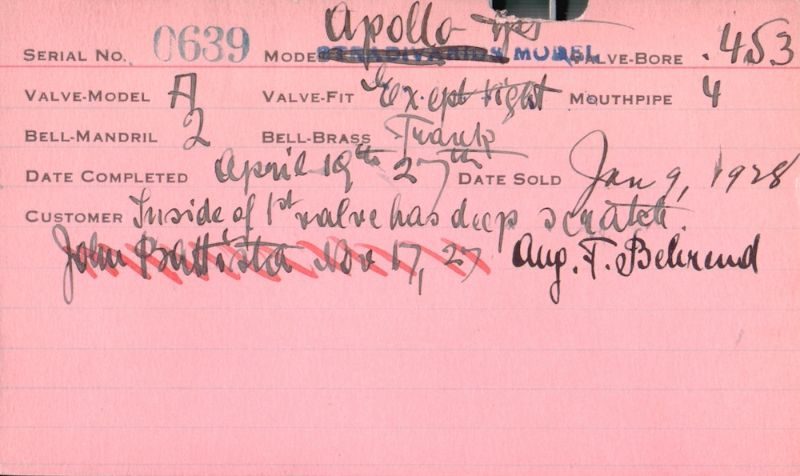 Apollo
SERIAL NO. 0639 MODEL STRADIVARIUS MODEL VALVE-BORE .453
VALVE-MODEL A VALVE-FIT Except tight MOUTHPIPE 4
BELL-MANDRIL 2 BELL-BRASS
DATE COMPLETED April 19th 27th DATE SOLD Jan 9, 1928
CUSTOMER Inside of 1st valve has deep scratch.
John Battista Nov 17, 27 Aug. F. Behrend